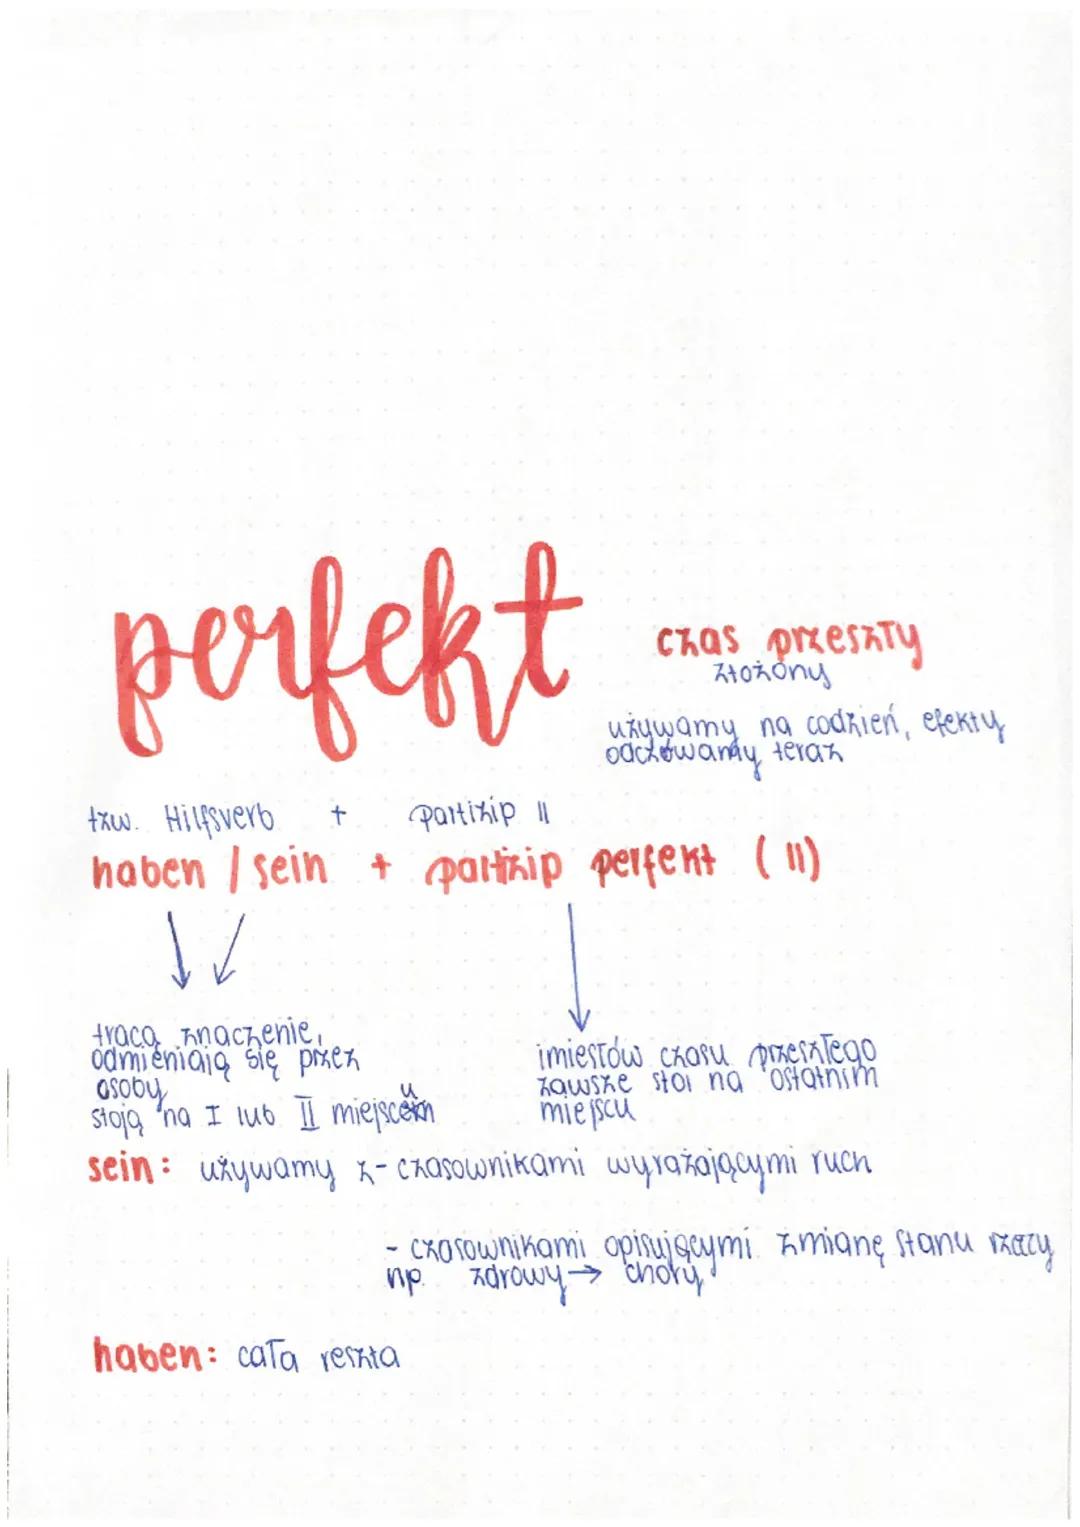 perfekt
czas przeszły
złożony
używamy na codzień, efekty
odczuwamy teraz
tzw. Hilfsverb + Partizip II
haben / sein + partizip perfekt (II)
tracą znaczenie,
odmieniają się przez
osoby
stoją na I lub II miejscu
imiesłów czasu przeszłego
zawsze stoi na ostatnim
miejscu
sein: używamy z - czasownikami wyrażającymi ruch
- czasownikami opisującymi zmianę stanu rzeczy
np. zdrowy → chory
haben: cała reszta